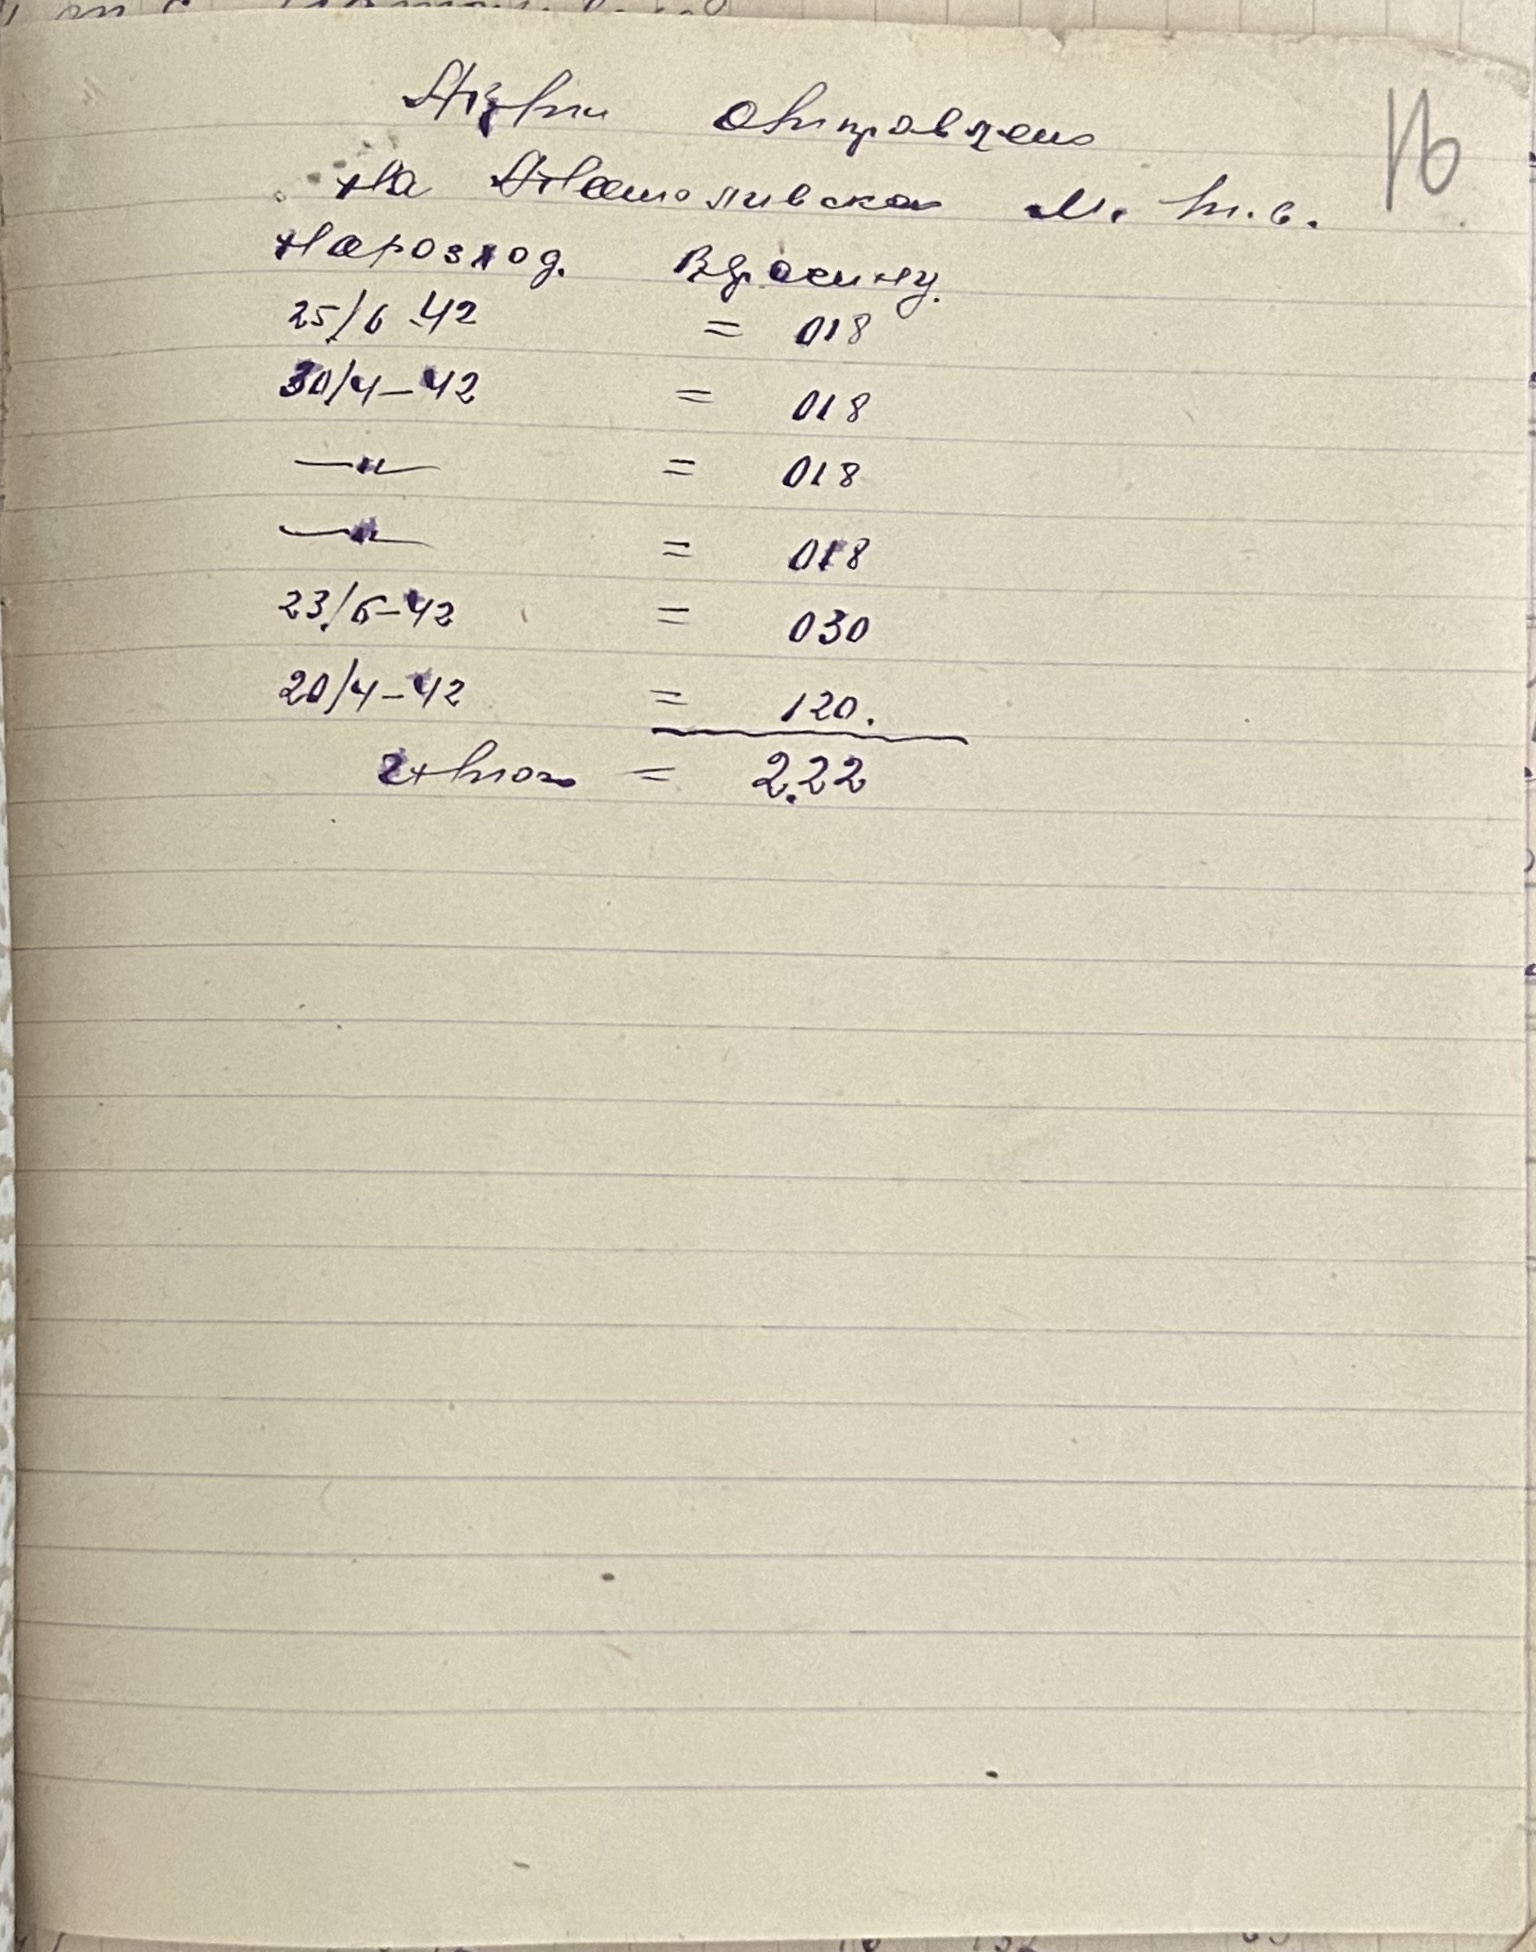 16
отправлено
На Анатоливская М. т. с.
Нарозход. В дроенну.
25/6-42 = 018
30/4-42 = 018
—"— = 018
—"— = 018
23/6-42 = 030
20/4-42 = 120.
Итого = 2.22